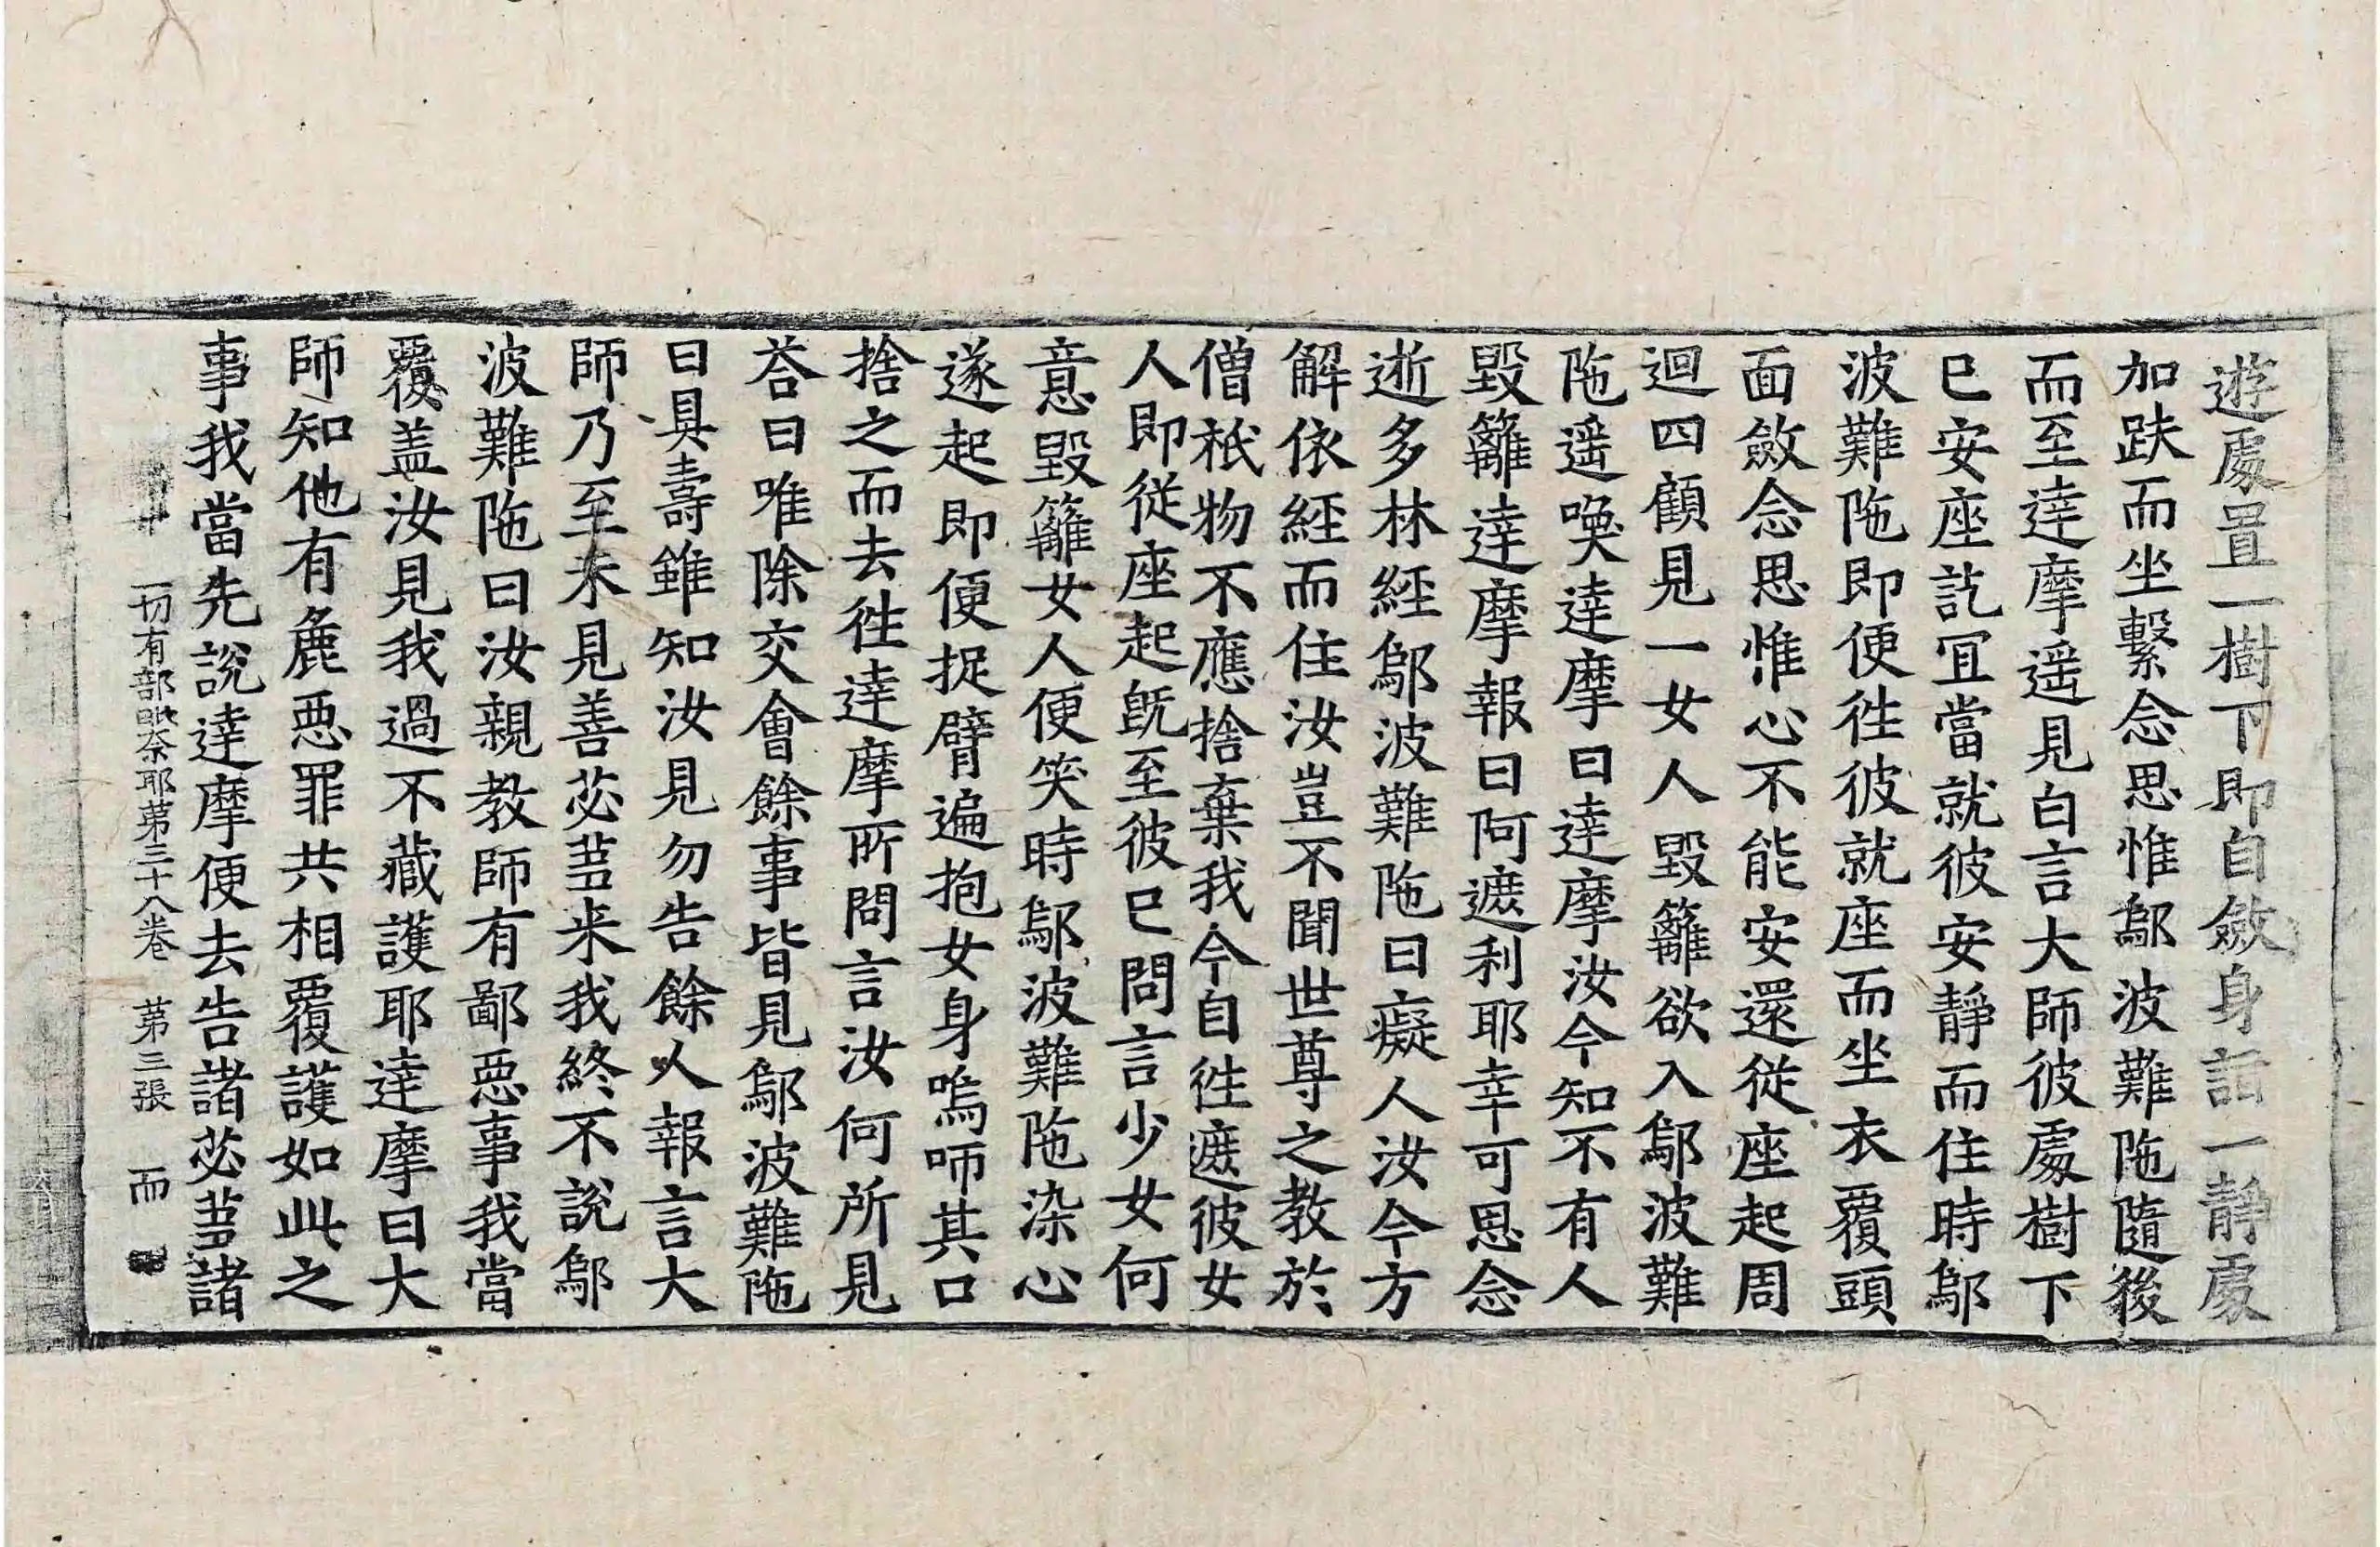 遊處置一樹下即自斂身詣一靜處
加趺而坐繫念思惟鄔波難陁隨後
而至達摩遥見白言大師彼處樹下
已安座訖冝當就彼安靜而住時鄔
波難陁即便徃彼就座而坐衣覆頭
面斂念思惟心不能安還從座起周
迴四顧見一女人毀籬欲入鄔波難
陁遥喚達摩曰達摩汝今知不有人
毀籬達摩報曰阿遮利耶幸可思念
逝多林經鄔波難陁曰癡人汝今方
解依經而住汝豈不聞世尊之教於
僧祇物不應捨棄我今自徃遮彼女
人即從座起旣至彼已問言少女何
意毀籬女人便笑時鄔波難陁染心
遂起即便捉臂遍抱女身嗚㗱其口
捨之而去徃達摩所問言汝何所見
荅曰唯除交會餘事皆見鄔波難陁
曰具壽雖知汝見勿告餘人報言大
師乃至未見善苾蒭来我終不說鄔
波難陁曰汝親教師有鄙惡事我當
覆盖汝見我過不藏護耶達摩曰大
師知他有麁惡罪共相覆護如此之
事我當先說達摩便去告諸苾蒭諸
一切有部毗奈耶第三十八卷 第三張 而